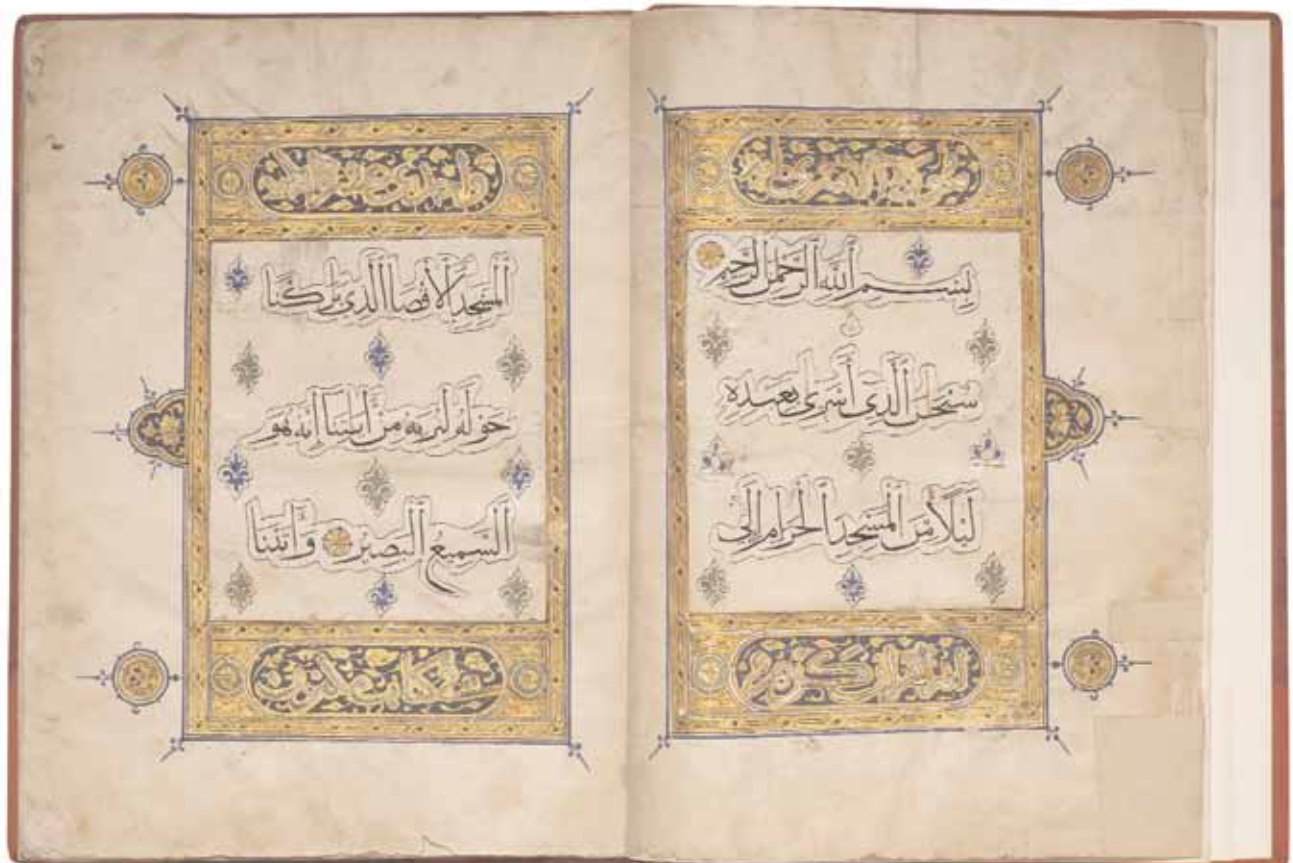 بسم الله الرحمن الرحيم
سبحن الذى أسرى بعبده
ليلا من المسجد الحرام إلى
انه لقران كريم
المسجد الاقصا الذى بركنا
حوله لنريه من ايتنا إنه هو
السميع البصير واتينا
فى كتاب مكنون